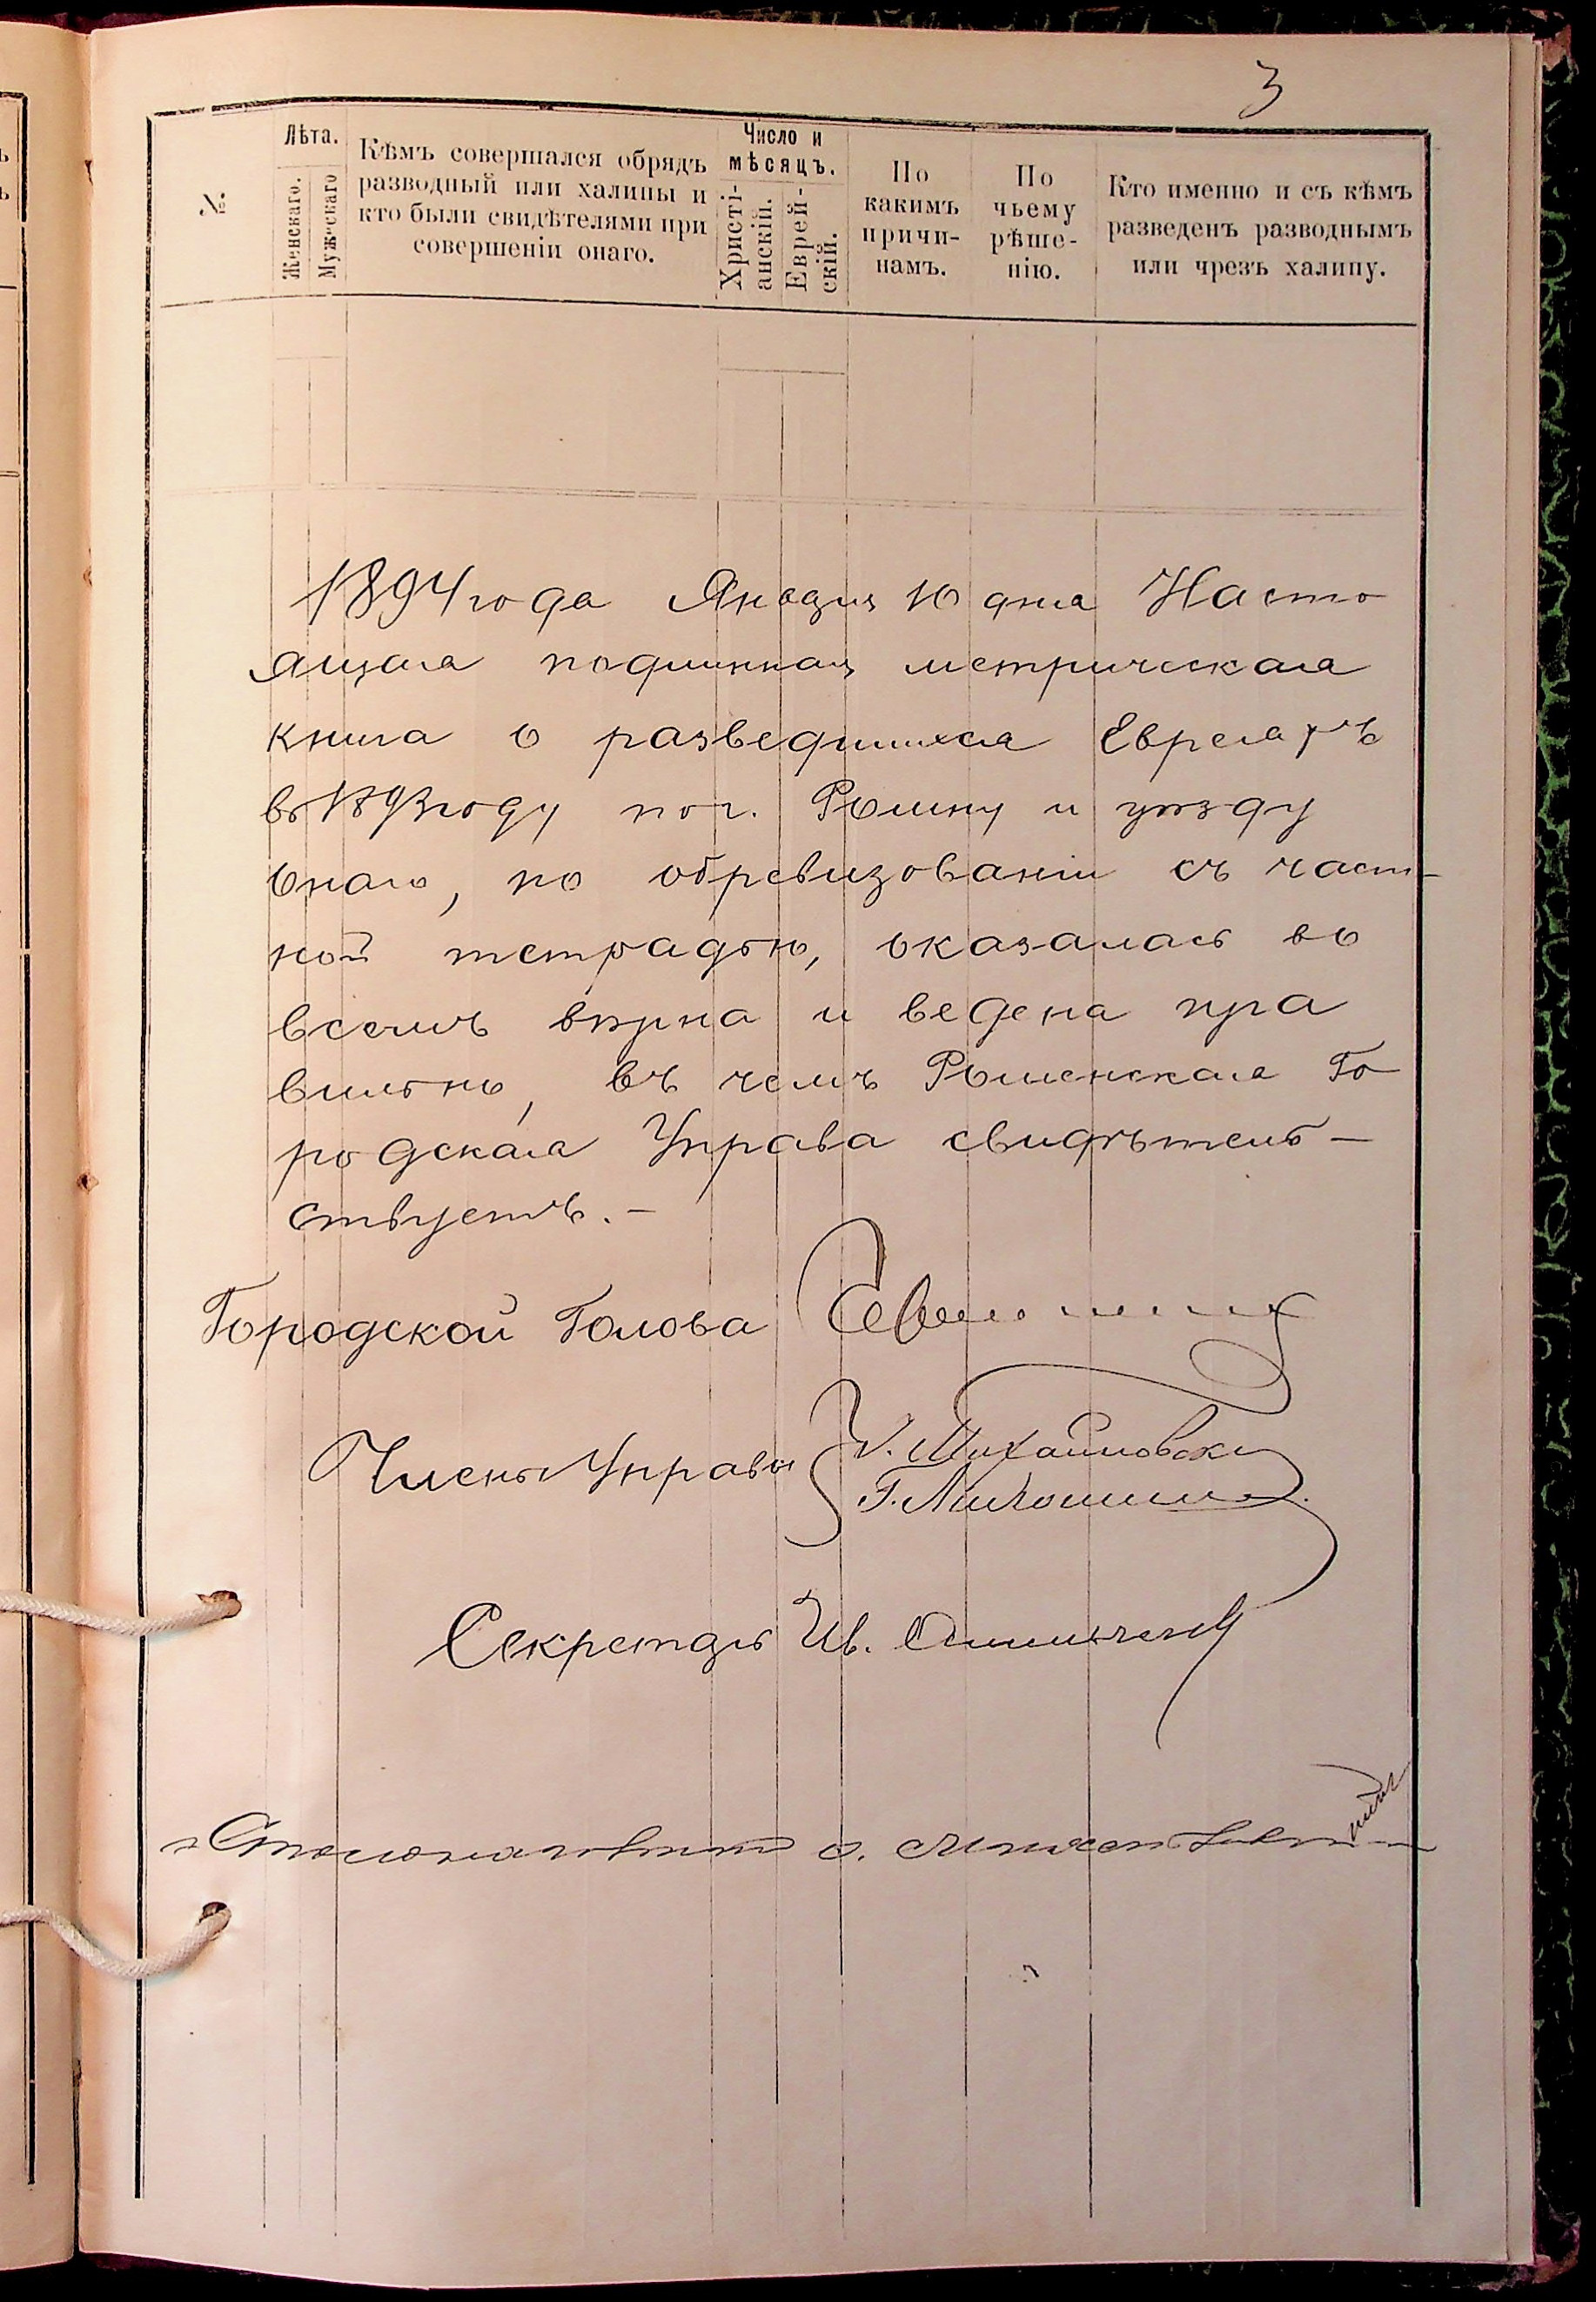 3
№
Лѣта.
Женскаго.
Мужскаго
Кѣмъ совершался обрядъ
разводный или халицы и
кто были свидѣтелями при
совершеніи онаго.
Число и
мѣсяцъ.
Христі-
анскій.
Еврей-
скій.
По
какимъ
причи-
намъ.
По
чьему
рѣше-
нію.
Кто именно и съ кѣмъ
разведенъ разводнымъ
или чрезъ халицу.
1894 года Января 10 дня Насто
ящая подлинная метрическая
книга о разведшихся Евреяхъ
въ 1893 году по г. Ромну и уѣзду
онаго, по обревизованіи съ част-
ной тетрадью, оказалась во
всемъ вѣрна и ведена пра
вильно, въ чемъ Роменская Го
родская Управа свидѣтель-
ствуетъ.-
Городской Голова
Члены Управы Михайловскі
Г.
Секретарь Ив.